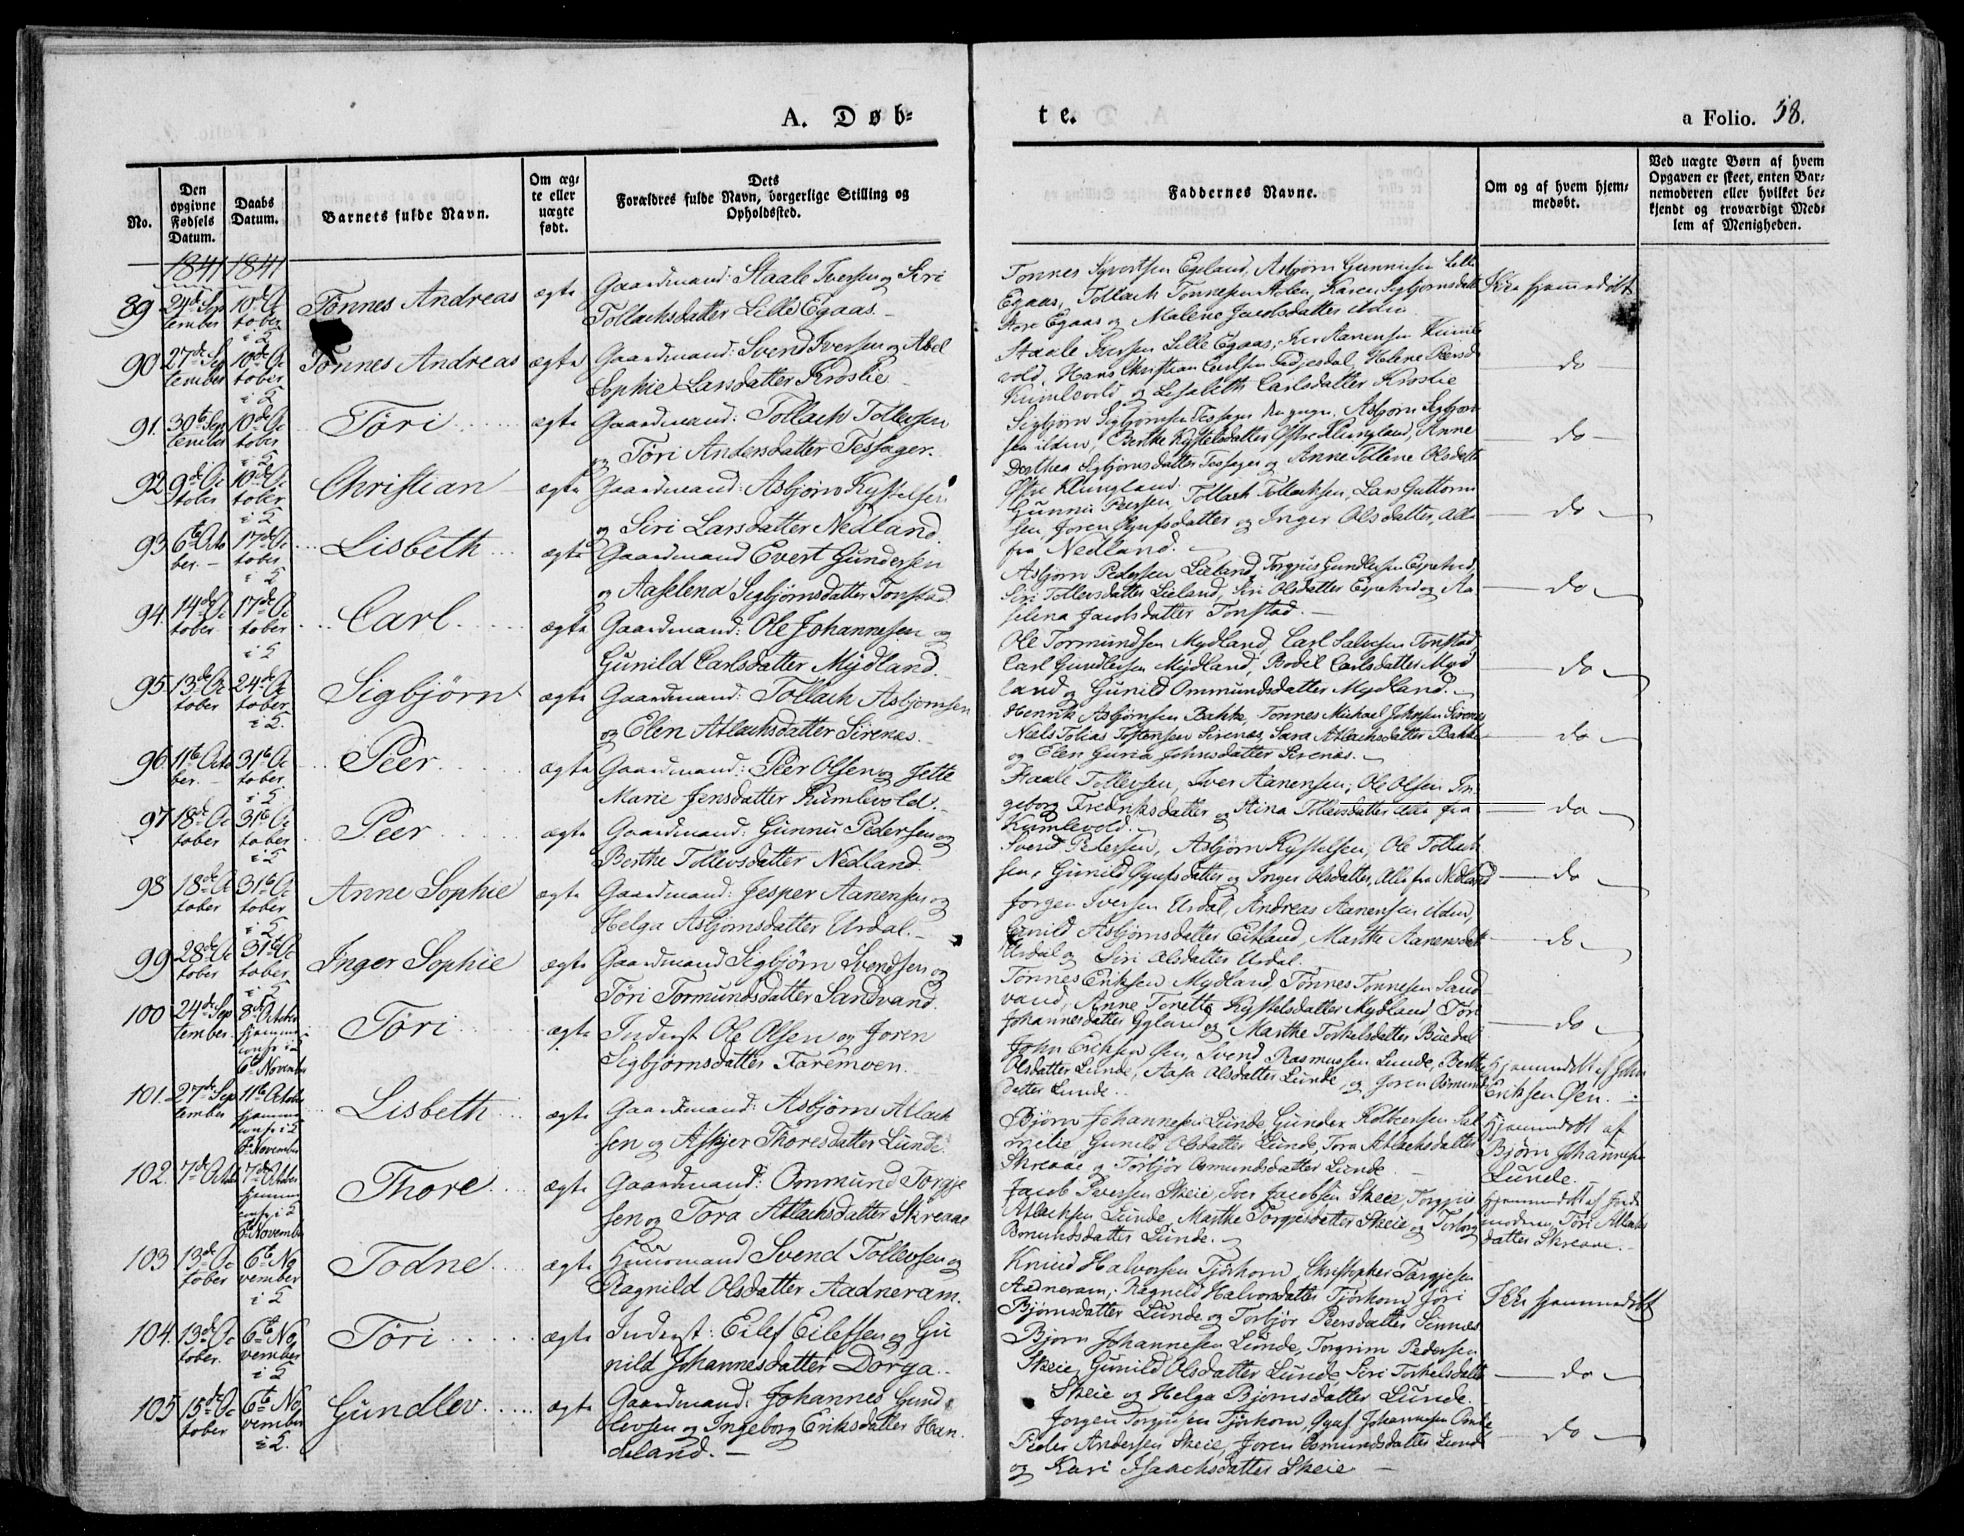 A. Døb=
te.
a Folio. 58.
No.
Den opgivne Fødsels Datum.
Daabs Datum.
Barnets fulde Navn.
Om ægte eller uægte født.
Dets Forældres fulde Navn, borgerlige Stilling og Opholdssted.
Faddernes Navne.
Om og af hvem hjemmedøbt.
Ved uægte Børn af hvem Opgaven er skeet, enten Barnemoderen eller hvilket bekjendt og troværdigt Medlem af Menigheden.
1841 1841
89 24de September 10de October i S Tønnes Andreas ægte Gaardmand: Staale Iversen og Siri
Tollachsdatter Lille Egaas.
Tønnes Syvertsen Egeland, Asbjørn Gunnufsen Lille
Egaas, Tollach Tønnesen Aolen, Karen Sigbjørnsdatter
Store Egaas og Malene Jacobsdatter
Ikke hjemmedøbt
90 27de September 10de October i S Tønnes Andreas ægte Gaardmand: Svend Iversen og Abel
Sophie Larsdatter Kroslie
Staale Iversen Lille Egaas, Iver Aanensen Kumle
vold, Hans Christian Carlsen Fedjedal, Helene Peersd.
Kumlevold og Lisabeth Carlsdatter Kroslie
do
91. 30te September 10de October i S Tøri ægte Gaardmand: Tollach Tollevsen
og Tøri Andersdatter Tessager.
Sigbjørn Sigbjørnsen Tessager den yngre, Asbjørn Sigbjørn
sen ibidm, Berthe Kystelsdatter Østre Klungland, Anne
Dorthea Sigbjørnsdatter Tessager og Anne Tolline Olsdatt
Østre Klungland.
do
92 9de October 10de October i S Christian ægte Gaardmand: Asbjørn Kystelsen
og Siri Larsdatter Nedland.
Gunnu Peersen, Tollach Tollachsen, Lars Guttorm
sen, Joren Gyufsdatter og Inger Olsdatter, alle
fra Nedland.
do
93 6te October. 17de October i S Lisbeth ægte Gaardmand Evert Gundersen
og Aaselena Sigbjørnsdatter Tonstad.
Asbjørn Pedersen Lieland, Torgrus Gundersen Espetveid,
Siri Tollevsdatter Lieland, Siri Olsdatter Espetveid og Aa
selena Jacobsdatter Tonstad.
do
94. 14de October 17de October i S Carl ægte Gaardmand: Ole Johannesen og
Gunild Carlsdatter Mydland.
Ole Tormundsen Mydland, Carl Salvesen Tonstad,
Carl Gundersen Mydland, Bodil Carlsdatter Myd
land og Gunild Ommundsdatter Mydland.
do
95. 13de October 24de October i S. Sigbjørn ægte Gaardmand: Tollach Asbjørnsen
og Elen Atlachsdatter Sirenæs.
Henrik Asbjørnsen Bakke, Tønnes Michael Johnsen Sirenæs
Niels Tobias Torstensen Sirenæs, Sara Atlachsdatter Bakke
og Elen Guria Johnsdatter Sirenæs.
do
96. 11te October. 31te October i S Peer ægte Gaardmand: Peer Olsen og Jette
Marie Jensdatter Kumlevold.
Staale Tollevsen, Iver Aanensen, Ole Olsen In
geborg Fredriksdatter og Stina Tollevsdatter alle fra
Kumlevold.
do
97 18de October 31te October i S Peer ægte Gaardmand: Gunnu Pedersen og
Berthe Tollevsdatter Nedland.
Svend Pedersen, Asbjørn Kystelsen, Ole Tollach
sen, Gunild Gyufsdatter og Inger Olsdatter, alle fra Nedland
do
98 18de October 31te October i S Anne Sophie ægte Gaardmand: Jesper Aanensen og
Helga Asbjørnsdatter Urdal.
Jørgen Iversen Urdal, Andreas Aanensen ibdm,
Gunild Asbjørnsdatter Eitland, Marthe Aanensdatt
Urdal og Siri Olsdatter Urdal.
do
99 28de October 31te October i S Inger Sophie ægte Gaardmand Sigbjørn Svendsen og
Tøri Tormundsdatter Sandvand.
Tønnes Eriksen Mydland, Tønnes Tønnesen Sand
vand, Anne Tonette Kystelsdatter Mydland Tøri
Johannesdatter Gyland og Marthe Torkelsdatter Buedal
do
100 24de September. 8de October hjemme confr i S 6te November Tøri ægte Inderst Ole Olsen og Joren
Sigbjørnsdatter Faremoen.
John Eriksen Øen, Svend Rasmussen Lunde, Berthe
Olsdatter Lunde, Aasa Olsdatter Lunde, og Joren Osmunds
datter Lunde.
Hjemmedøbt af John
Eriksen Øen.
101. 27de September 11te October hjemme confr i S 6te November Lisbeth ægte Gaardmand: Asbjørn Atlach
sen og Askjer Thoresdatter Lunde.
Bjørn Johannesen Lunde, Gunder Kolbensen Sal
melie, Gunild Olsdatter Lunde, Tora Atlachsdatter
Skreaae og Torbjør Osmundsdatter Lunde
Hjemmedøbt af
Bjørn Johannesen
Lunde.
102. 7de October 7de October hjemme confr i S 6te November Thore ægte Gaardmand: Ommund Torgje
sen og Tora Atlachsdatter Skreaae
Jacob Peersen Skeie, Iver Jacobsen Skeie, Torgjus
Atlachsen Lunde, Marthe Torgjesdatter Skeie og Torborg
Osmundsdatter Lunde.
Hjemmedøbt af Jorde
moderen, Tøri Atlachs
datter Skreaae.
103 13de October 6te November i S Todne ægte Huusmand Svend Tollevsen og
Ragnild Olsdatter Aadneram.
Knud Halvorsen Tjørhom, Christopher Torgjesen
Aadneram, Ragnild Halvorsdatter Tjørhom, Jøri
Bjørnsdatter Lunde og Torbjør Peersdatter Sinnæs
Ikke hjemmedøbt
104. 13de October. 6te November i S Tøri ægte Inderst: Eilef Eilefsen og Gu
nild Johannesdatter Dorga.
Bjørn Johannesen Lunde, Torgrim Pedersen
Skeie, Gunild Olsdatter Lunde, Siri Torkelsdatter
Skeie og Helga Bjørnsdatter Lunde.
do
105 15de October 6te November i S. Gundlev ægte Gaardmand: Johannes Gund
levsen og Ingeborg Eriksdatter Han
deland.
Jørgen Torgjusen Tjørhom, Gyuf Johannesen Omlie
Peder Andersen Skeie, Joren Osmundsdatter Lunde
og Kari Isaachsdatter Skeie
do